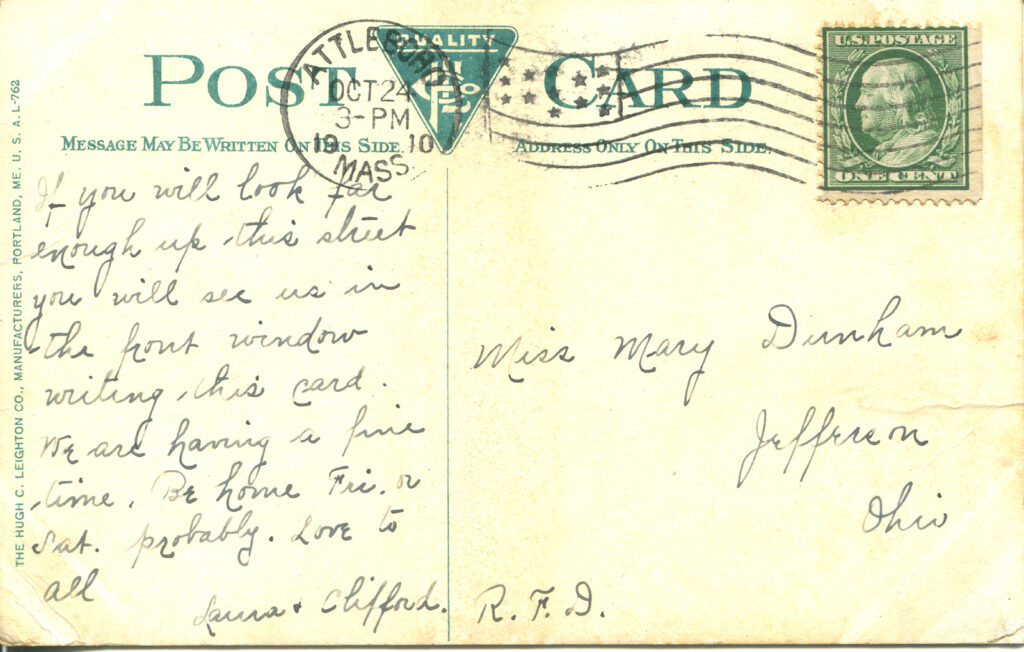 POST CARD
QUALITY
MESSAGE MAY BE WRITTEN ON THIS SIDE.
ADDRESS ONLY ON THIS SIDE.
ATTLEBORO
OCT 24
3-PM
19 10
MASS.
U.S. POSTAGE
ONE CENT
THE HUGH C. LEIGHTON CO., MANUFACTURERS, PORTLAND, ME. U. S. A. L-762
If you will look far
enough up this street
you will see us in
the front window
writing this card.
We are having a fine
time. Be home Fri. or
Sat. probably. Love to
all
Laura + Clifford.
Miss Mary Dunham
Jefferson
Ohio
R. F. D.